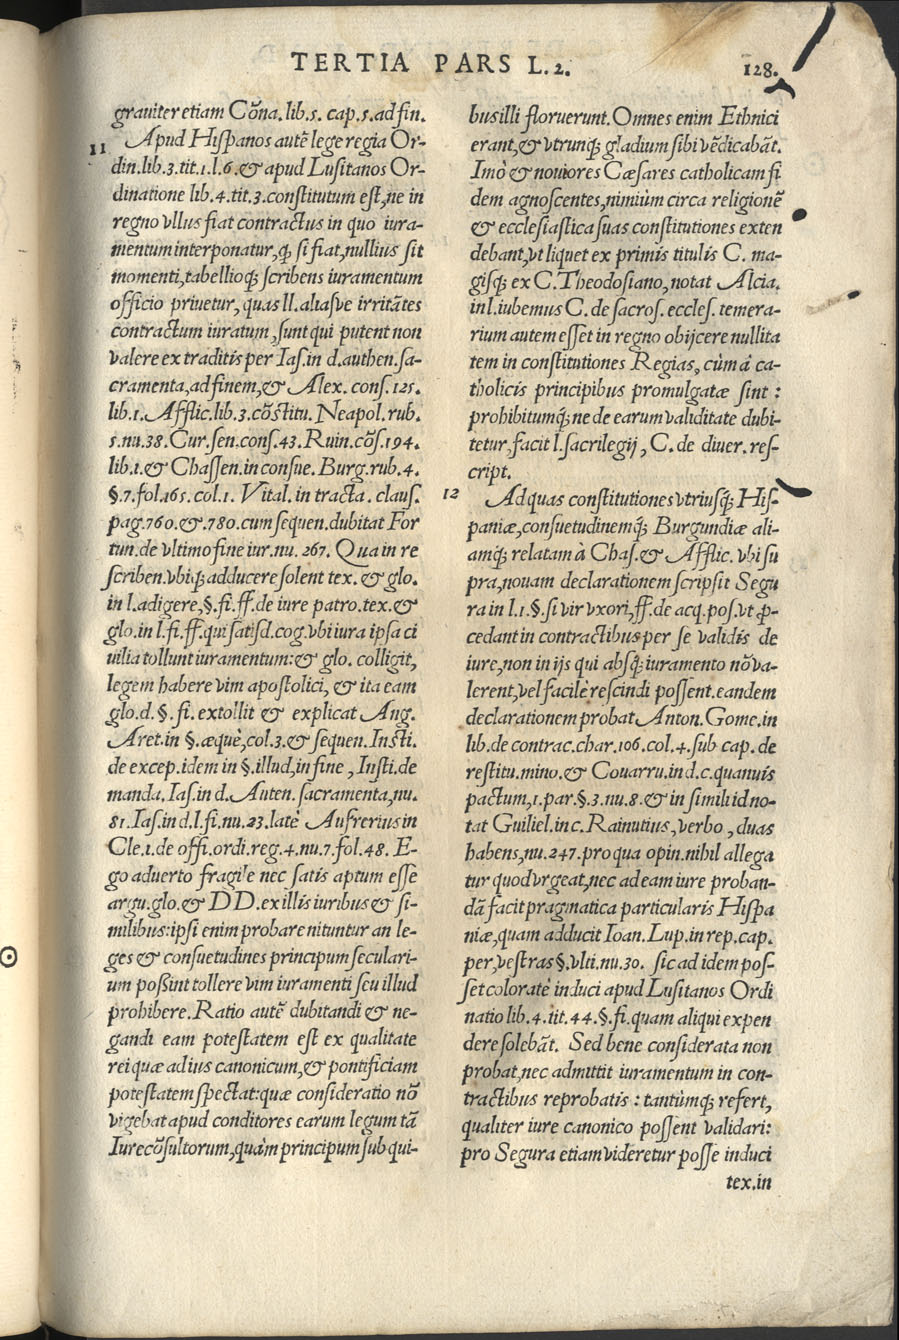 TERTIA PARS L.2.
128.
grauiter etiam Cōna. lib.5. cap.5.ad fin.
11 Apud Hispanos autē lege regia Or-
din.lib.3.tit.1.l.6.& apud Lusitanos Or-
dinatione lib.4.tit.3.constitutum est,ne in
regno vllus fiat contractus in quo iura-
mentum interponatur,q; si fiat,nullius sit
momenti,tabellioq; scribens iuramentum
officio priuetur, quas ll.aliasve irritātes
contractum iuratum, sunt qui putent non
valere ex traditis per Ias.in d.authen.sa-
cramenta,ad finem,& Alex. cons.125.
lib.1.Afflic.lib.3.cōstitu.Neapol.rub.
5.nu.38.Cur.sen.cons.43.Ruin.cōs.194.
lib.1.& Chassen.in consue.Burg.rub.4.
§.7.fol.165.col.1. Vital.in tracta. claus.
pag.760.&.780.cum sequen.dubitat For
tun.de vltimo fine iur.nu. 267. Qua in re
scriben.vbiq; adducere solent tex. & glo.
in l.adigere,§.fi.ff.de iure patro.tex.&
glo.in l.fi.ff.qui satisd.cog.vbi iura ipsa ci
uilia tollunt iuramentum:& glo. colligit,
legem habere vim apostolici, & ita eam
glo.d.§.fi.extollit & explicat Ang.
Aret.in §.æquè,col.3.& sequen.Insti.
de excep.idem in §.illud,in fine, Insti.de
manda.Ias.in d.Auten.sacramenta,nu.
81.Ias.in d.l.fi.nu.23.latè Aufrerius in
Cle.1.de offi.ordi.reg.4.nu.7.fol.48. E-
go aduerto fragile nec satis aptum esse
argu.glo.& DD.ex illis iuribus & si-
milibus:ipsi enim probare nituntur an le-
ges & consuetudines principum seculari-
um possint tollere vim iuramenti seu illud
prohibere.Ratio autē dubitandi & ne-
gandi eam potestatem est ex qualitate
rei quæ ad ius canonicum,& pontificiam
potestatem spectat:quæ consideratio nō
vigebat apud conditores earum legum tā
Iurecōsultorum,quàm principum sub qui-
bus illi floruerunt.Omnes enim Ethnici
erant,& vtrunq; gladium sibi vēdicabāt.
Imò & nouiores Cæsares catholicam fi
dem agnoscentes,nimiùm circa religionē
& ecclesiastica suas constitutiones exten
debant,vt liquet ex primis titulis C. ma-
gisq; ex C.Theodosiano,notat Alcia.
in l.iubemus C.de sacros.eccles.temera-
rium autem esset in regno obijcere nullita
tem in constitutiones Regias, cùm à ca-
tholicis principibus promulgatæ sint :
prohibitumq; ne de earum validitate dubi-
tetur,facit l.sacrilegij, C.de diuer.res-
cript.
12 Ad quas constitutiones vtriusq; His-
paniæ,consuetudinemq; Burgundiæ ali-
amq; relatam à Chas.& Afflic. vbi su
pra,nouam declarationem scripsit Segu
ra in l.1.§.si vir vxori,ff.de acq.pos.vt p̄-
cedant in contractibus per se validis de
iure,non in ijs qui absq; iuramento nō va-
lerent,vel facilè rescindi possent.eandem
declarationem probat Anton.Gome.in
lib.de contrac.char.106.col.4.sub cap.de
restitu.mino.& Couarru.in d.c.quanuis
pactum,1.par.§.3.nu.8.& in simili id no-
tat Guiliel.in c.Rainutius,verbo, duas
habens,nu.247.pro qua opin.nihil allega
tur quod vrgeat,nec ad eam iure proban-
dā facit pragmatica particularis Hispa
niæ,quam adducit Ioan.Lup.in rep.cap.
per,vestras §.vlti.nu.30. sic ad idem pos-
set coloratè induci apud Lusitanos Ordi
natio lib.4.tit.44.§.fi.quam aliqui expen
dere solebāt. Sed bene considerata non
probat,nec admittit iuramentum in con-
tractibus reprobatis : tantùmq; refert,
qualiter iure canonico possent validari:
pro Segura etiam videretur posse induci
tex.in